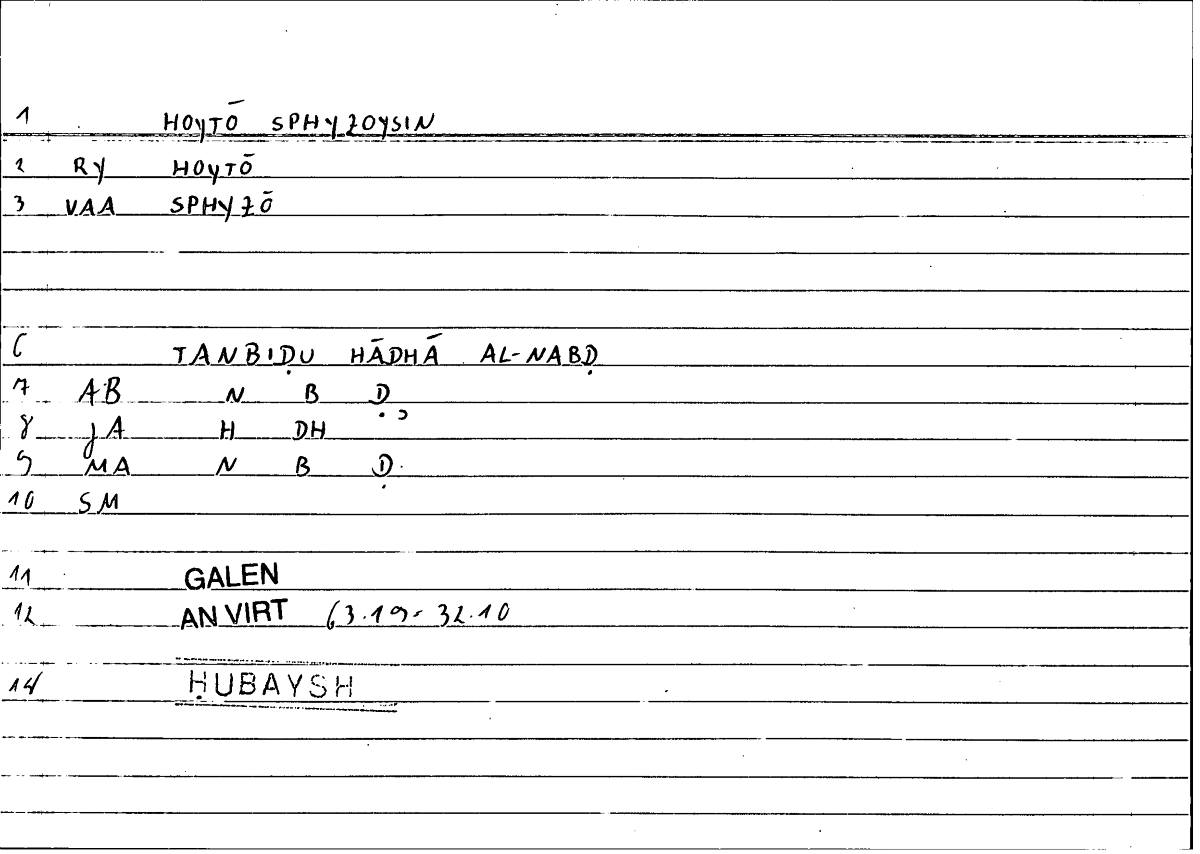 1 HOYTŌ SPHYZOYSIN
2 RY HOYTŌ
3 VAA SPHYZŌ
6 TANBIḌU HĀDHĀ AL-NABḌ
7 AB N B Ḍ
8 JA H DH
9 MA N B Ḍ
10 SM
11 GALEN
12 AN VIRT 63.19-32.10
14 ḤUBAYSH